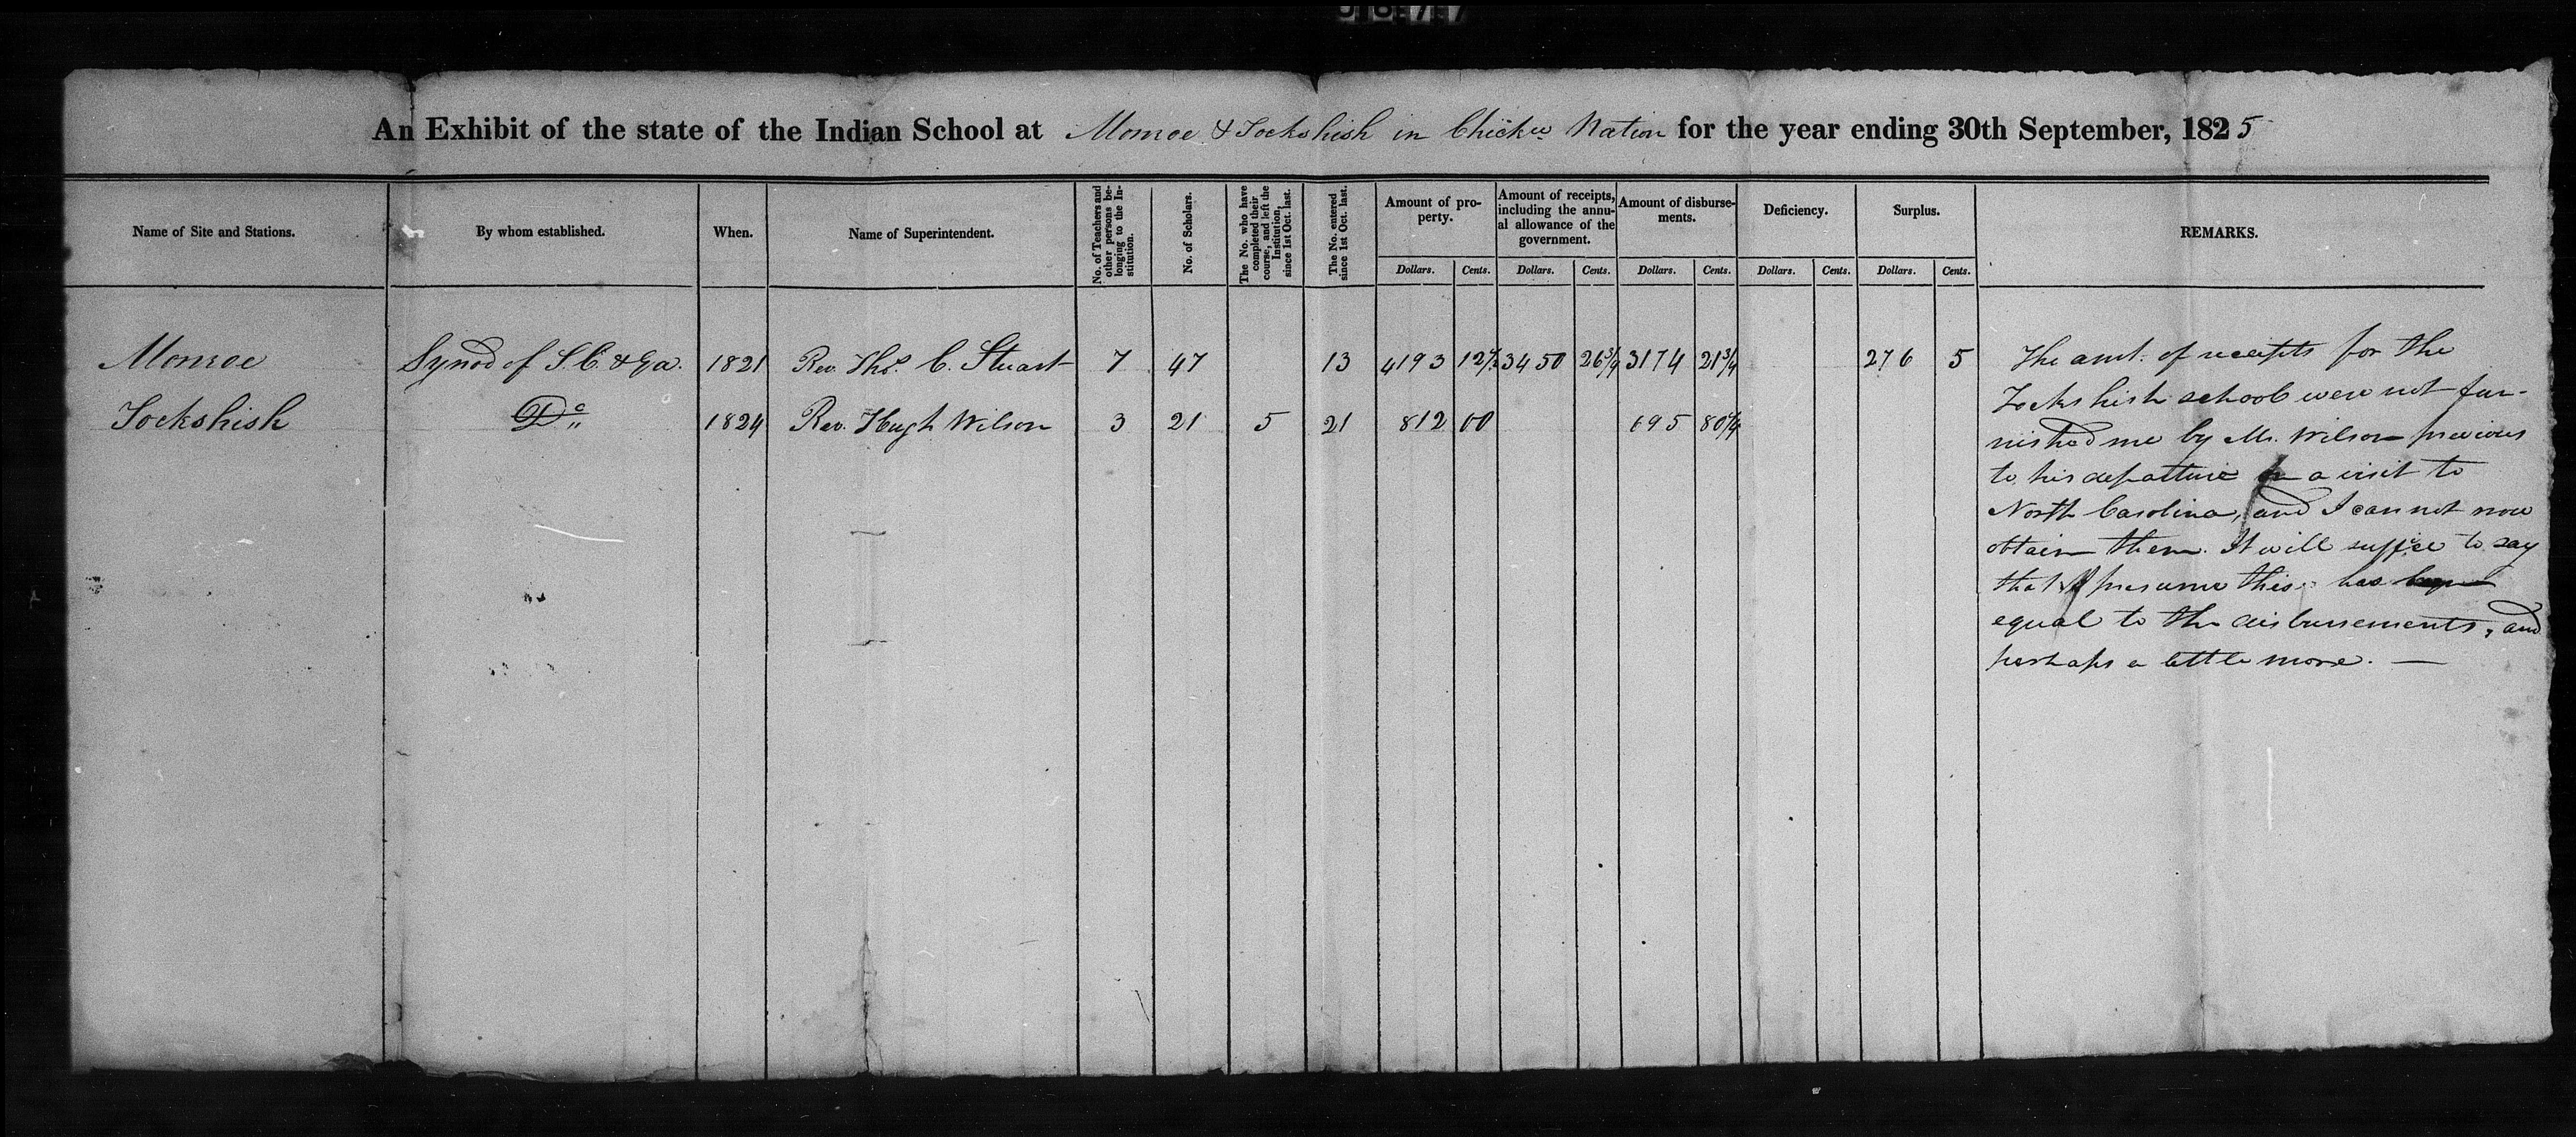 An Exhibit of the state of the Indian School at Monroe & Tockshish in Chick.w Nation for the year ending 30th September, 1825
Name of Site and Stations.
By whom established.
When.
Name of Superintendent.
No. of Teachers and other persons belonging to the Institution.
No. of Scholars.
The No. who have completed their course, and left the Institution, since 1st Oct. last.
The No. entered since 1st Oct. last.
Amount of property.
Amount of receipts, including the annual allowance of the government.
Amount of disbursements.
Deficiency.
Surplus.
REMARKS.
Dollars. Cents. Dollars. Cents. Dollars. Cents. Dollars. Cents. Dollars. Cents.
Monroe Synod of S.C. & Ga. 1821 Rev. Thos. C. Stuart 7 47 13 4193 12 1/2 3450 26 3/4 3174 21 3/4 276 5
Tockshish Do 1824 Rev. Hugh Wilson 3 21 5 21 812 00 695 80
The amt. of receipts for the
Tockshish school were not fur-
nished me by Mr. Wilson previous
to his departure on a visit to
North Carolina, and I can not now
obtain them. It will suffice to say
that I presume this has been
equal to the disbursements, and
perhaps a little more. —